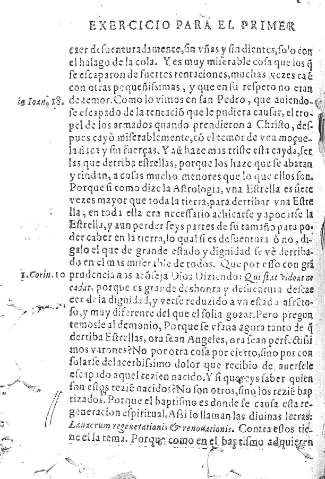 EXERCICIO PARA EL PRIMER
caer desuenturadamente, sin vñas y sin dientes, solo con
el halago de la cola. Y es muy miserable cosa que los q̃
se escaparon de fuertes tentaciones, muchas vezes caẽ
con otras pequeñissimas, y que en su respeto no eran
in Ioan. 18.
de temor. Como lo vimos en san Pedro, que auiendo-
se escapado de la tentació que le pudiera causar, el tro-
pel de los armados quando prendieron a Christo, des-
pues cayó miserablemente, có el temor de vna moçue-
la flaca y sin fuerças. Y aũ haze mas triste esta cayda, ser
las que derriba estrellas, porque los haze que se abatan
y rindan, a cosas mucho menores que lo que ellos son.
Porque si como dize la Astrologia, vna Estrella es siete
vezes mayor que toda la tierra, para derribar vna Estre
lla, en toda ella era necessario achicarse y apocarse la
Estrella, y aun perder seys partes de su tamaño para po-
der caber en la tierra, lo qual si es desuentura ò no, dí-
galo el que de grande estado y dignidad se vè derriba-
do en el mas miserable de todos. Que por esso con grã
1. Corin. 10
prudencia nos acõseja Dios Diziendo: Qui stat videat ne
cadat. porque es grande deshonra y desuentura descae
cer de la dignidad, y verse reduzido a vn estado
so, y muy diferente del que solia gozar. Pero pregun
temosle al demonio, Porque se vfana agora tanto de q̃
derriba Estrellas, ora sean Angeles, ora sean perfectissi
mos varones? No por otra cosa por cierto, sino por con
solarse del acerbissimo dolor que recibio de auersele
escapado aquel rezien nacido. Y si quereys saber quien
son estos reziẽ nacidos? No son otros, sino los reziẽ bap
tizados. Porque el baptismo es donde se causa esta re-
generacion espiritual. Assi lo llaman las diuinas letras.
Lauacrum regenerationis & renouationis. Contra estos tie-
ne el la tema. Porque como en el baptismo adquieren